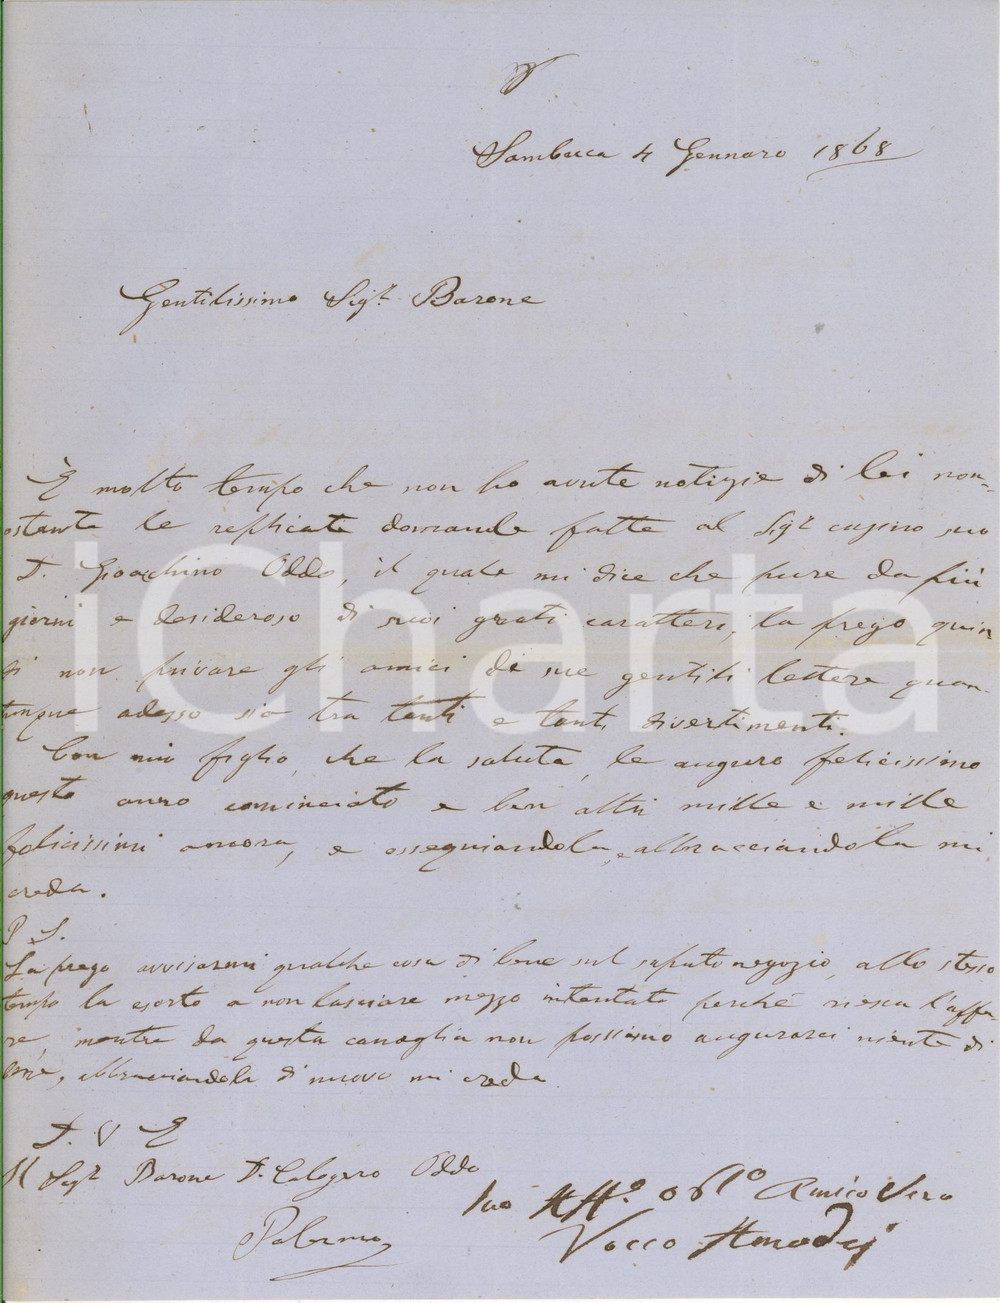 Sambuca 4 Gennaro 1868
Gentilissimo Sigr Barone
È molto tempo che non ho avute notizie di lei non-
ostante le replicate domande fatte al Sigr cugino suo
D. Gioacchino Oddo, il quale mi dice che pure da più
giorni e desideroso di suoi grati caratteri, la prego quin
di non privare gli amici di sue gentili lettere quan-
tunque adesso sia tra tanti e tanti divertimenti.
Con mio figlio, che la saluta, le auguro felicissimo
questo anno cominciato e ben altri mille e mille
felicissimi ancora, e ossequiandola, e abbracciandola mi
creda.
P S.
La prego avvisarmi qualche cosa di bene sul saputo negozio, allo stesso
tempo la esorto a non lasciare mezzo intentato perché riesca l'affa-
re, mentre da questa canaglia non possiamo augurarci niente di
bene, abbracciandola di nuovo mi creda
D. V E
Al Sigr Barone D. Calogero Oddo
Palermo
Suo Aff.o obl.o Amico Vero
Vocco Amodei
iCharta